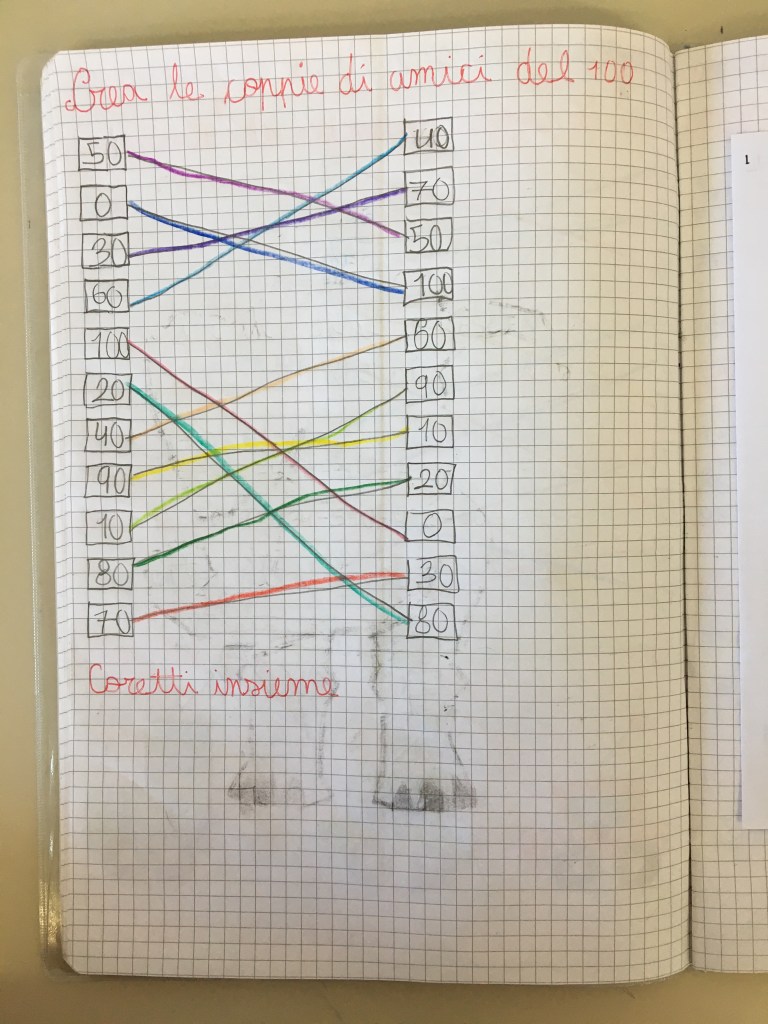 Crea le coppie di amici del 100
50 40
0 70
30 50
60 100
100 60
20 90
40 10
90 20
10 0
80 30
70 80
Coretti insieme
1